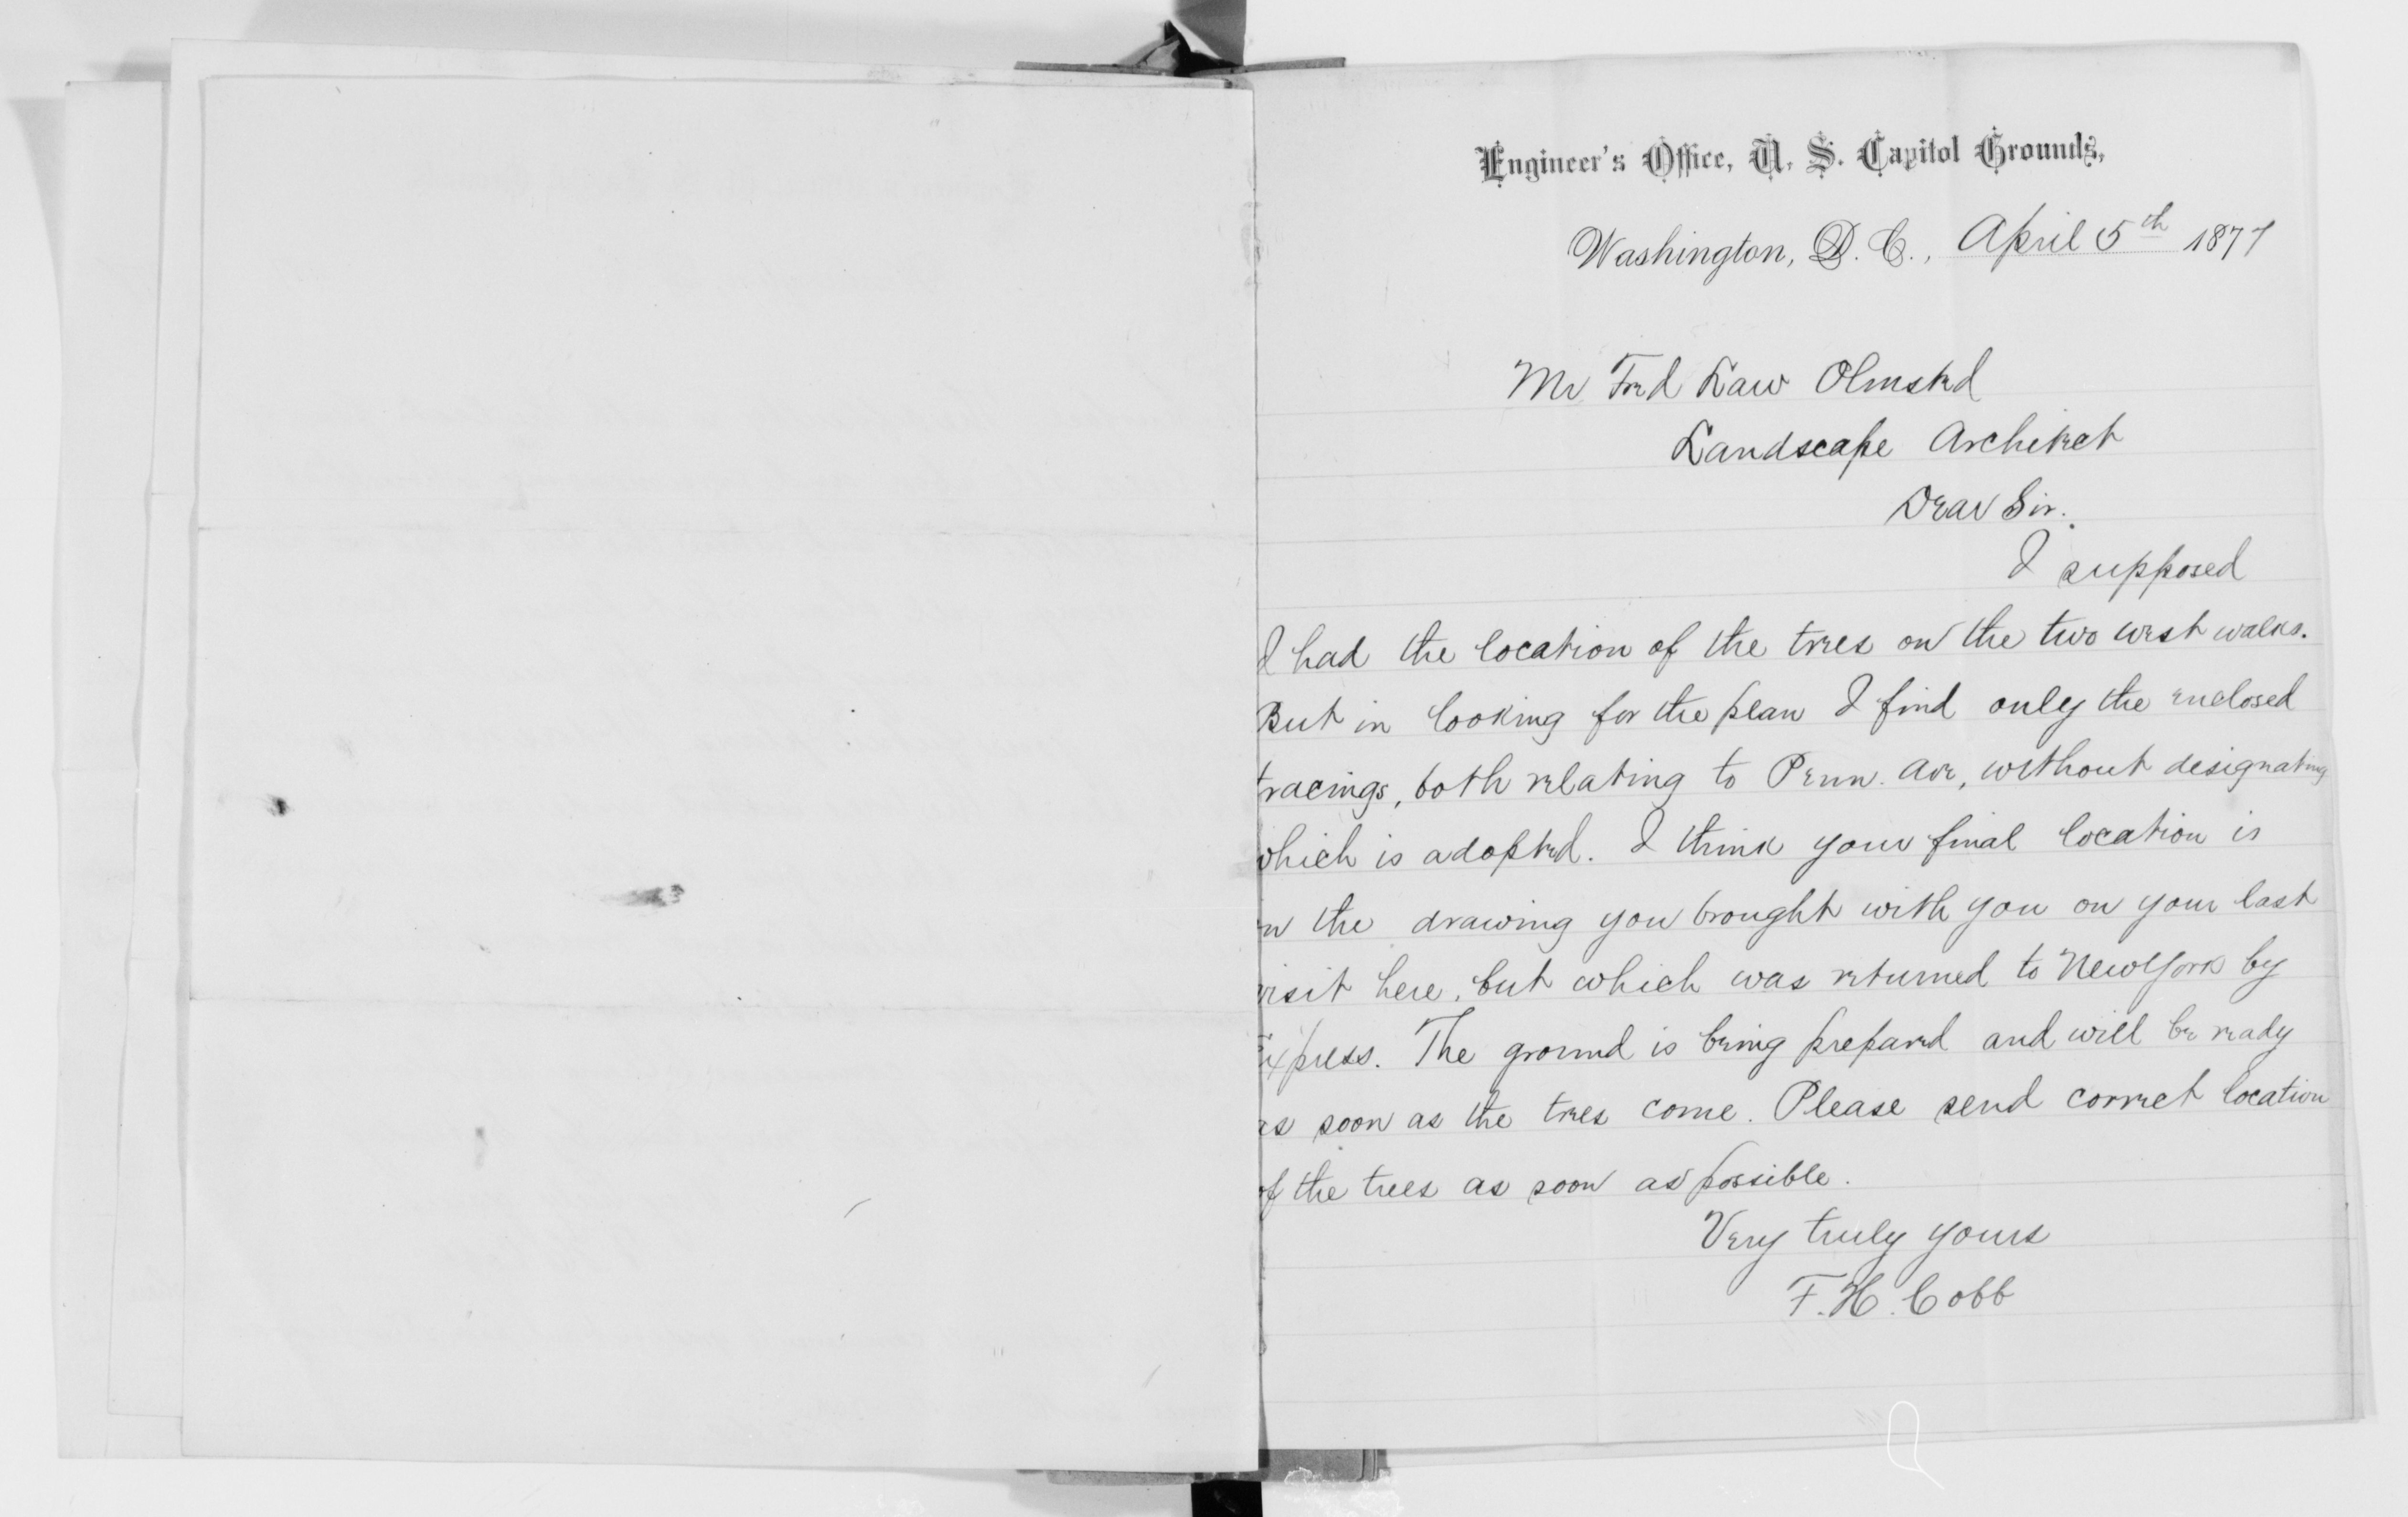 Engineer's Office, U. S. Capitol Grounds,
Washington, D. C., April 5th 1877
Mr Fred Law Olmsted
Landscape Architect
Dear Sir.
I supposed
I had the location of the trees on the two west walks.
But in looking for the plan I find only the enclosed
tracings, both relating to Penn. Ave, without designating
which is adopted. I think your final location is
on the drawing you brought with you on your last
visit here, but which was returned to New York by
Express. The ground is being prepared and will be ready
as soon as the trees come. Please send correct location
of the trees as soon as possible.
Very truly yours
F. H. Cobb